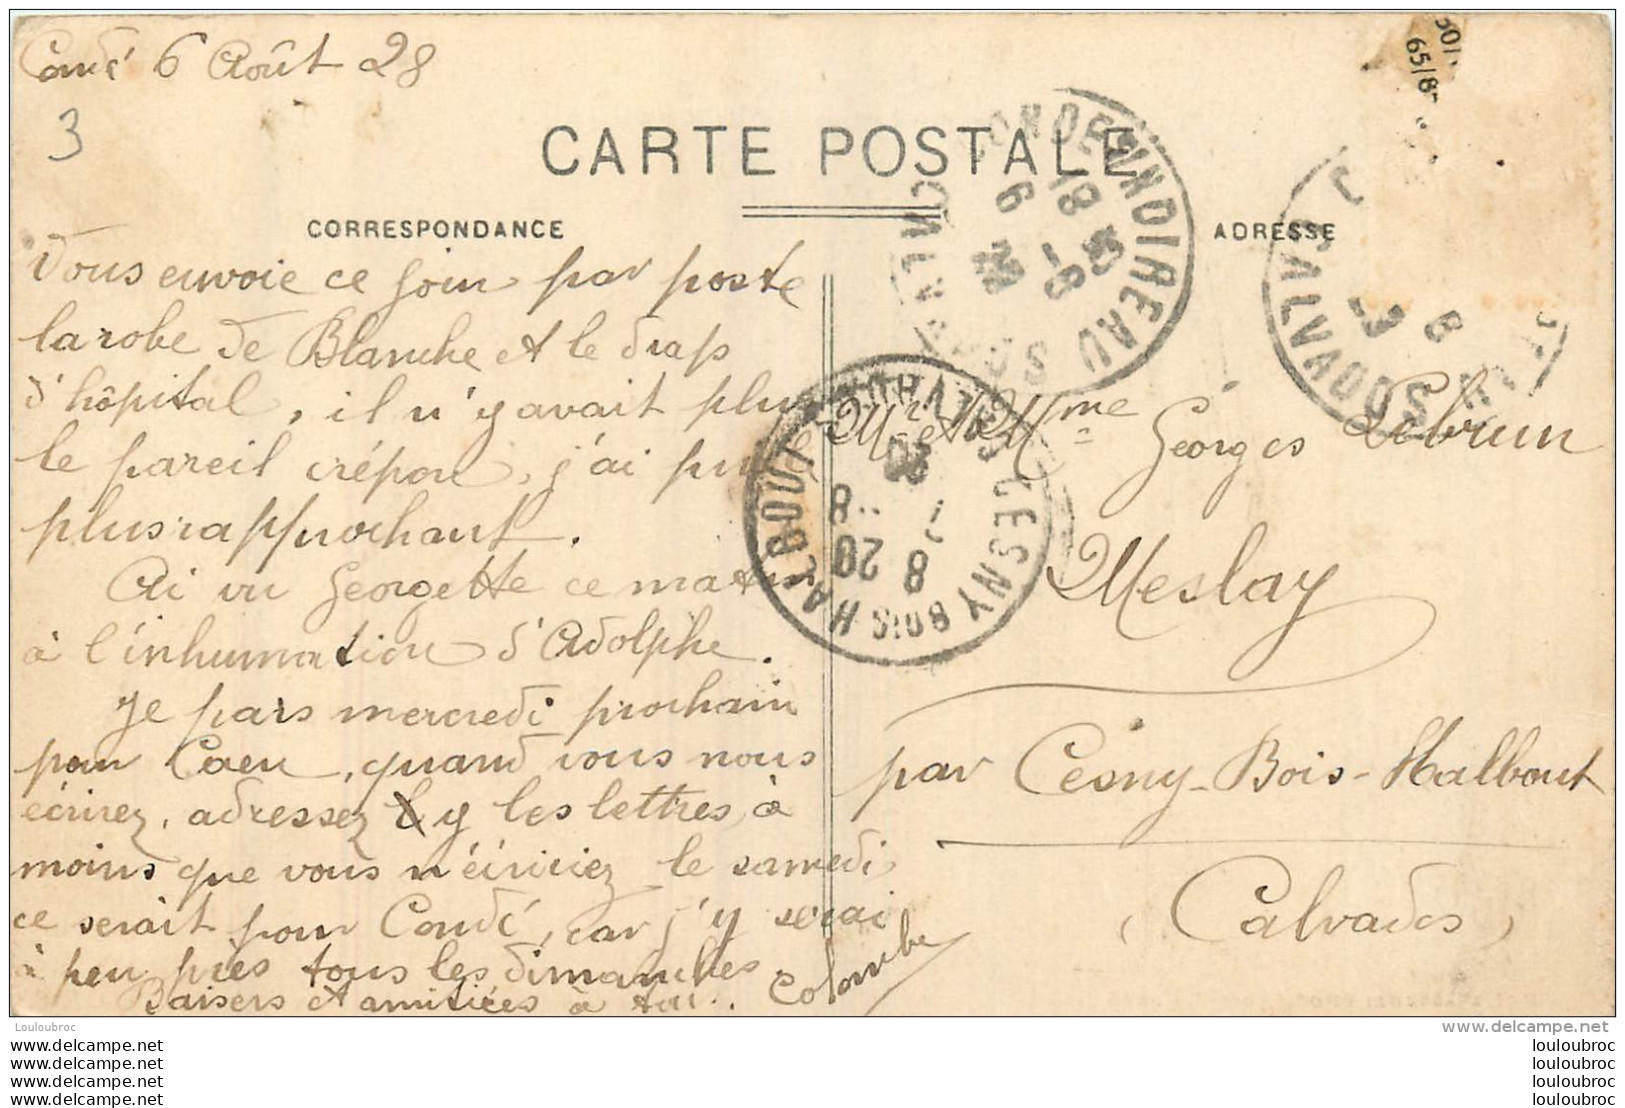 Condé 6 Août 28
3
CARTE POSTALE
CORRESPONDANCE
ADRESSE
Vous envoie ce join par poste
la robe de Blanche et le draps
d'hôpital, il n'y avait plus
le pareil crépon, j'ai pris le
plus rapprochant.
Ai vu Georgette ce matin
à l'inhumation d'Adolphe.
Je pars mercredi prochain
pour Caen, quand vous nous
écrirez, adressez y les lettres, à
moins que vous n'écriviez le samedi
ce serait pour Condé, car j'y serai
à peu près tous les dimanches
Baisers et amitiées à tous. Colombe
Mr et Mme Georges Lebrun
Meslay
par Cesny-Bois-Halbout
(Calvados)
CONDE EN NOIREAU
CALVADOS
18 35
6 -8
28
CESNY BOIS HALBOUT
CALVADOS
8 20
CALVADOS
65/8
Louloubroc
delcampe.net
louloubroc
louloubroc
louloubroc
louloubroc
louloubroc
louloubroc
louloubroc
louloubroc